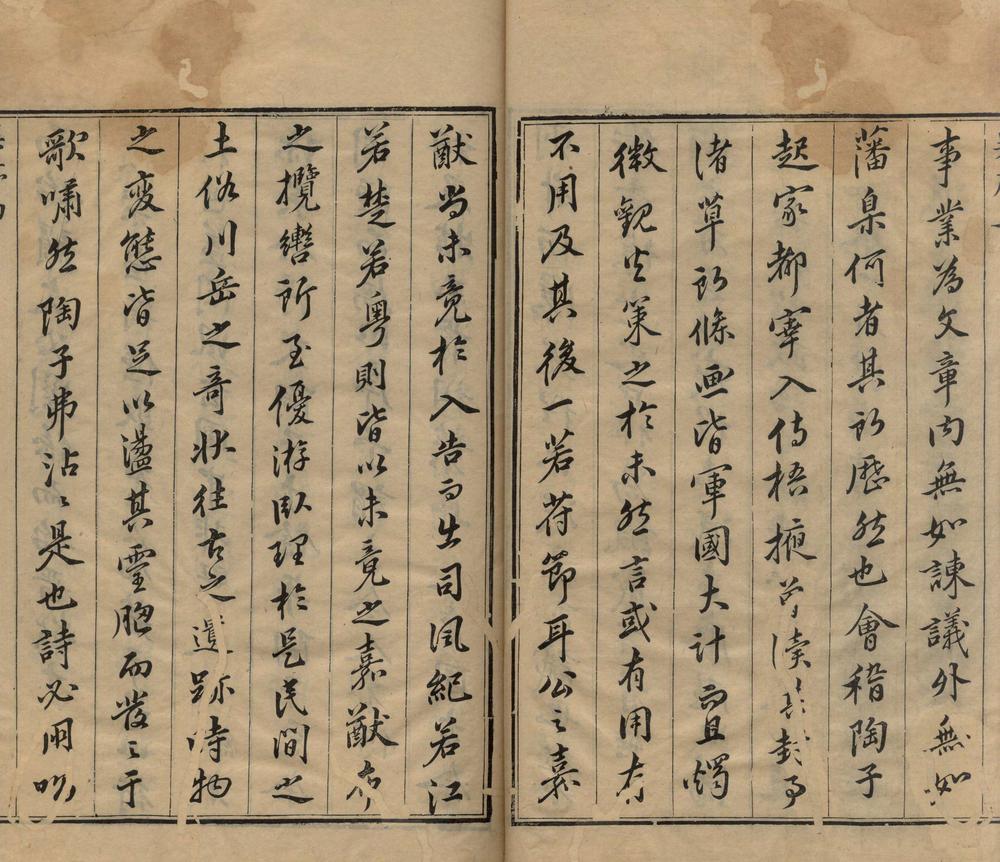 事業為文章內無如諫議外無如
藩臬何者其所歷然也會稽陶子
起家都宰入侍梧掖曾瀆封事
諸草所條畫皆軍國大計而且燭
微觀火策之於未然言或有用有
不用及其後一若符節耳公之嘉
猷尚未竟於入告而出司風紀若江
若楚若粵則皆以未竟之嘉猷布
之攬轡所至優游臥理於是民間之
土俗川岳之奇狀往古之遺跡時物
之變態皆足以盪其靈胸而發之于
歌嘯然陶子弗沾沾是也詩必用